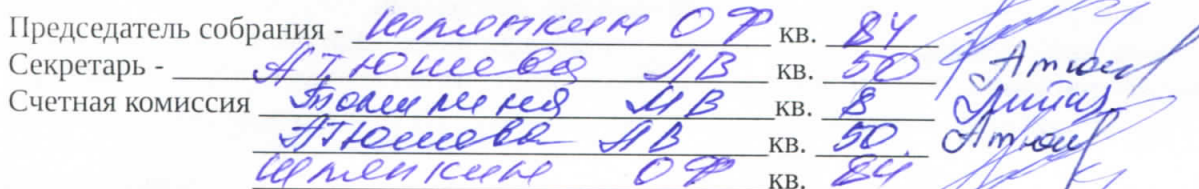 Председатель собрания - Шляпкин ОФ кв. 84
Секретарь - Атюшева ЛВ кв. 50
Счетная комиссия МВ кв. 8
Атюшева ЛВ кв. 50
Шляпкин ОФ кв. 84